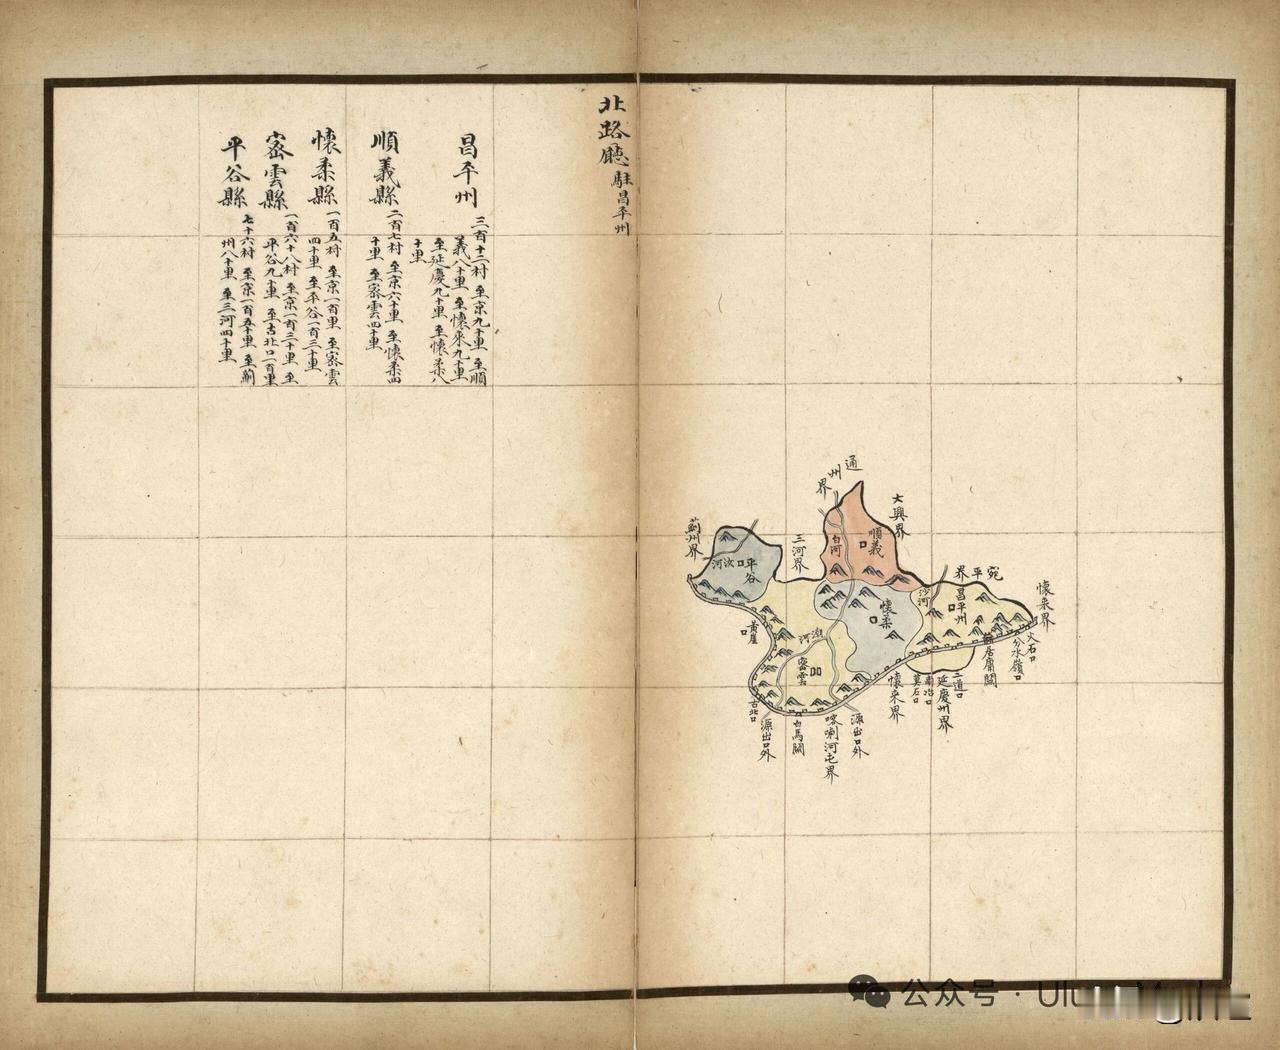 北路廳駐昌平州
昌平州
三百十二村 至京九十里 至順
義八十里 至懷來九十里
至延慶九十里 至懷柔八
十里
順義縣
二百七村 至京六十里 至懷柔四
十里 至密雲四十里
懷柔縣
一百五村 至京一百里 至密雲
四十里 至平谷一百三十里
密雲縣
一百六十八村 至京一百三十里 至
平谷九十里 至古北口一百里
平谷縣
七十六村 至京一百五十里 至薊
州八十里 至三河四十里
通州界
大興界
薊州界
三河界
順義
白河
平谷
汝河
宛平界
懷來界
沙河
昌平州
懷柔
黃崖口
潮河
密雲
火石口
分水嶺口
居庸關
二道口
延慶州界
懷來界
古北口
源出口外
白馬關
喀喇河屯界
源出口外
公众号